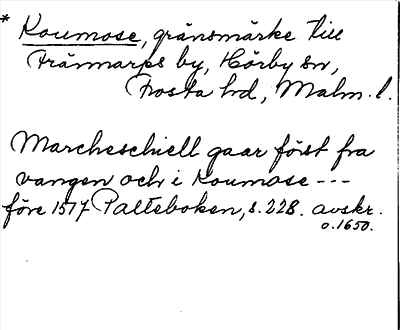 * Koumose, gränsmärke till
Fränmarps by, Hörby sn,
Frosta hd, Malm. l.
Marcheschiell gaar först fra
vangen och i Koumose ---
före 1517 Palteboken, s. 228. avskr.
o. 1650.